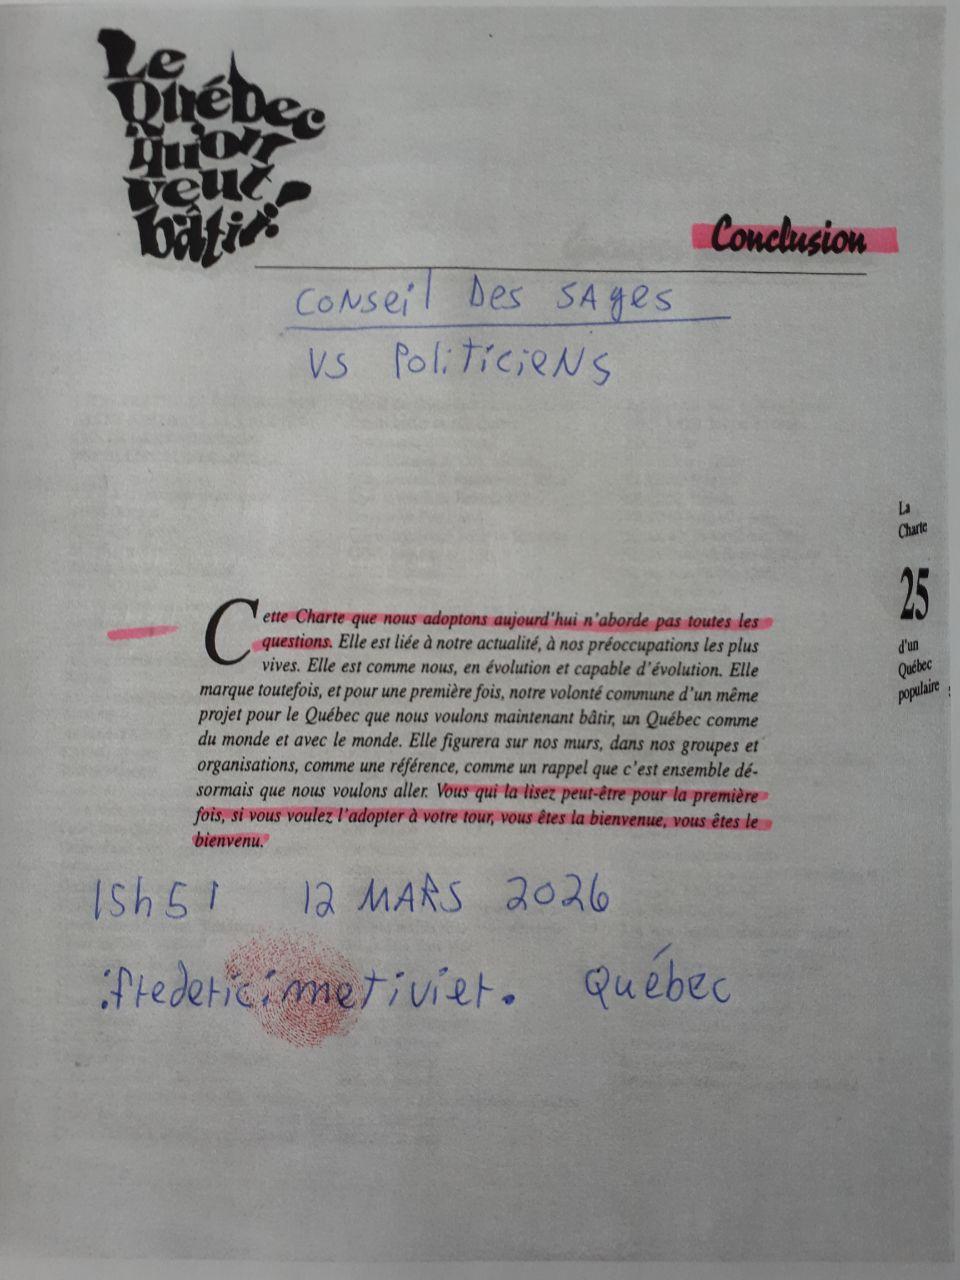 Le
Québec
qu'on
veut
bâtir!
Conclusion
CONSeil Des SAges
VS PoliTicieNs
La
Charte
25
d'un
Québec
populaire
Cette Charte que nous adoptons aujourd'hui n'aborde pas toutes les
questions. Elle est liée à notre actualité, à nos préoccupations les plus
vives. Elle est comme nous, en évolution et capable d'évolution. Elle
marque toutefois, et pour une première fois, notre volonté commune d'un même
projet pour le Québec que nous voulons maintenant bâtir, un Québec comme
du monde et avec le monde. Elle figurera sur nos murs, dans nos groupes et
organisations, comme une référence, comme un rappel que c'est ensemble dé-
sormais que nous voulons aller. Vous qui la lisez peut-être pour la première
fois, si vous voulez l'adopter à votre tour, vous êtes la bienvenue, vous êtes le
bienvenu.
15h51 12 MARS 2026
:frederic:metivier. Québec